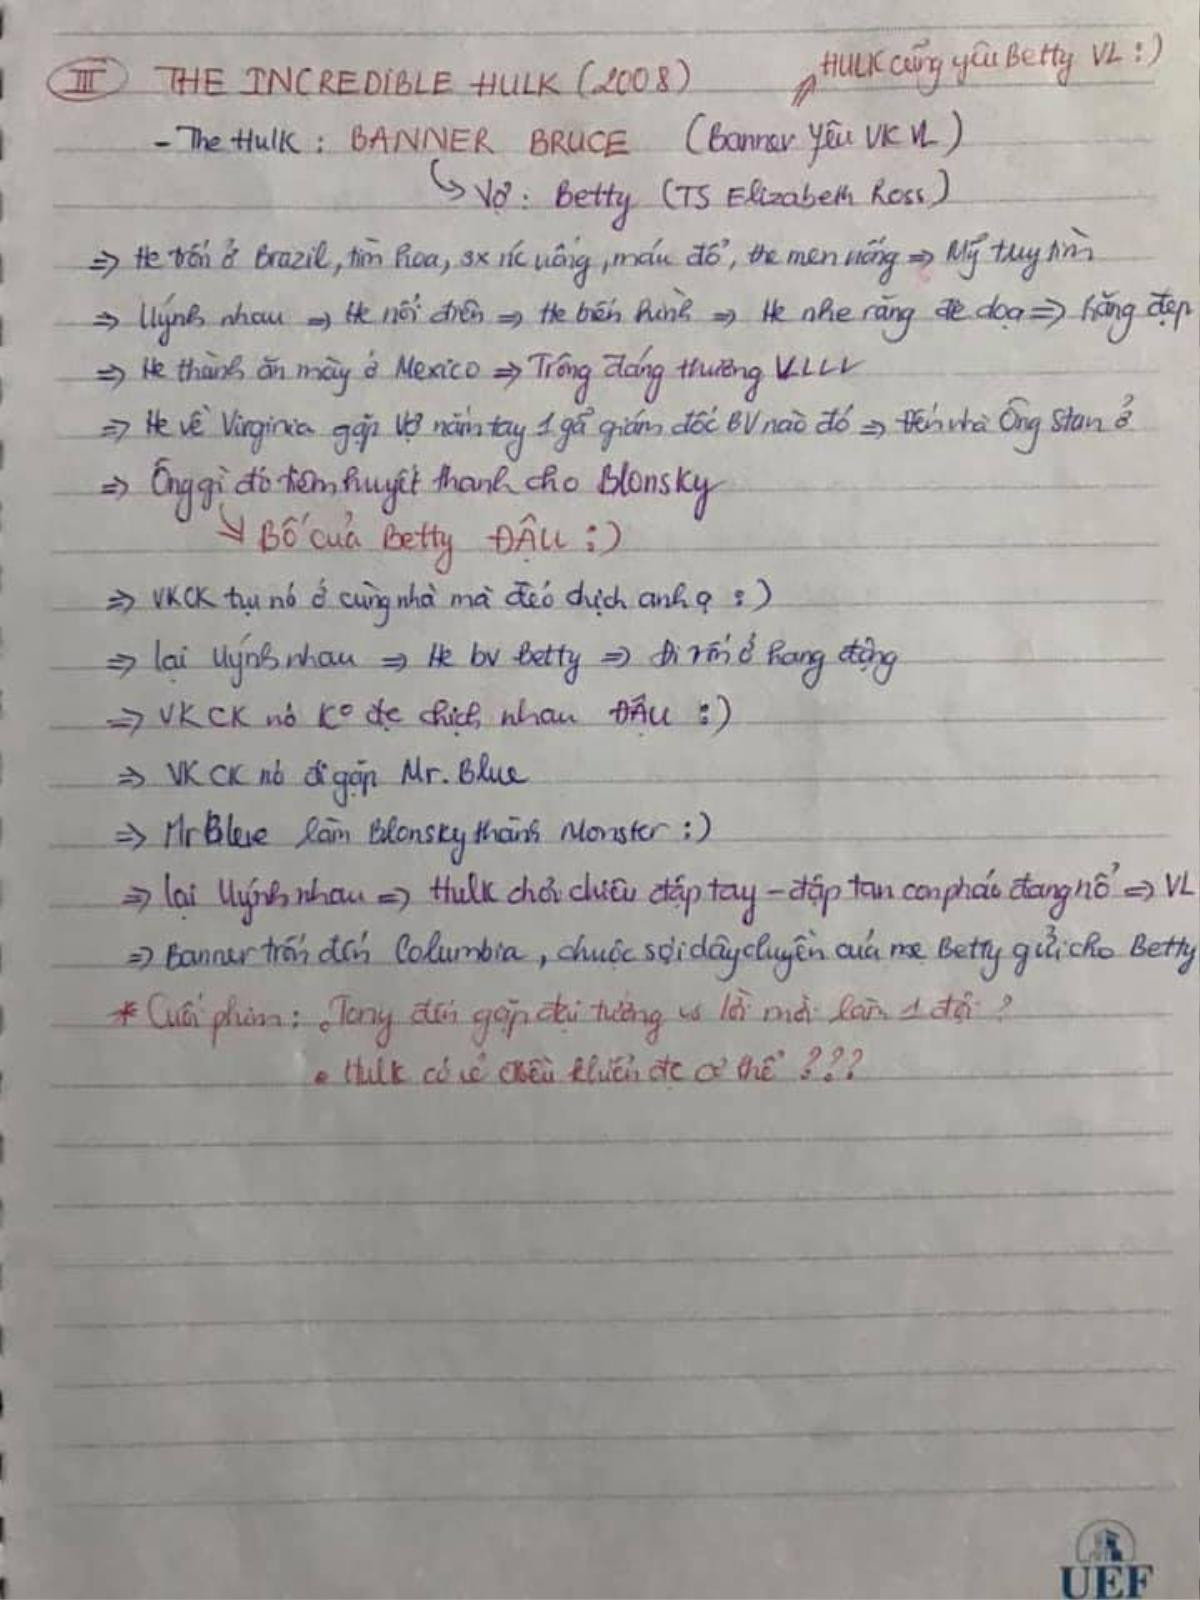 HULK cũng yêu Betty VL :)
III THE INCREDIBLE HULK (2008)
- The Hulk : BANNER BRUCE (Banner yêu VK VL)
Vợ : Betty (TS Elizabeth Ross)
⇒ He trốn ở Brazil, tìm hoa, sx nc uống, máu đổ, the men uống ⇒ Mỹ truy tìm
⇒ Uýnh nhau ⇒ He nổi điên ⇒ He biến hình ⇒ He nhe răng đe dọa ⇒ Răng đẹp
⇒ He thành ăn mày ở Mexico ⇒ Trông đáng thương VLLL
⇒ He về Virginia gặp vợ nắm tay 1 gã giám đốc BV nào đó ⇒ đến nhà Ông Stan ở
⇒ Ông gì đó tiêm huyết thanh cho Blonsky
Bố của Betty ĐẬU :)
⇒ VKCK tụi nó ở cùng nhà mà đéo chịch anh ạ :)
⇒ lại Uýnh nhau ⇒ He bv Betty ⇒ Đi trốn ở hang động
⇒ VKCK nó Ko đc chịch nhau ĐẬU :)
⇒ VKCK nó đi gặp Mr. Blue
⇒ Mr Blue làm Blonsky thành Monster :)
⇒ lại Uýnh nhau ⇒ Hulk chơi chiêu đập tay - đập tan con pháo đang nổ ⇒ VL
⇒ Banner trốn đến Columbia, chuộc sợi dây chuyền của mẹ Betty gửi cho Betty
* Cuối phim : • Tony đến gặp đại tướng vs lời mời làm 1 đội ?
• Hulk có lẽ điều khiển đc cơ thể ???
UEF